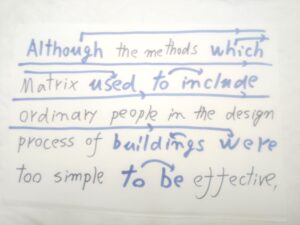 Although the methods which
Matrix used to include
ordinary people in the design
process of buildings were
too simple to be effective,